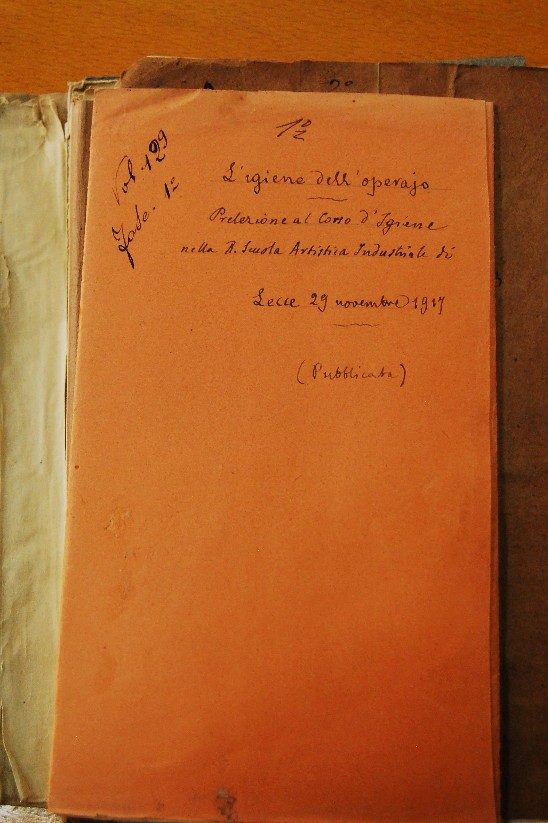 1º
Vol. 199
Fasc. 1º
L'igiene dell'operajo
Prelezione al Corso d'Igiene
nella R. Scuola Artistica Industriale di
Lecce 29 novembre 1917
(Pubblicata)